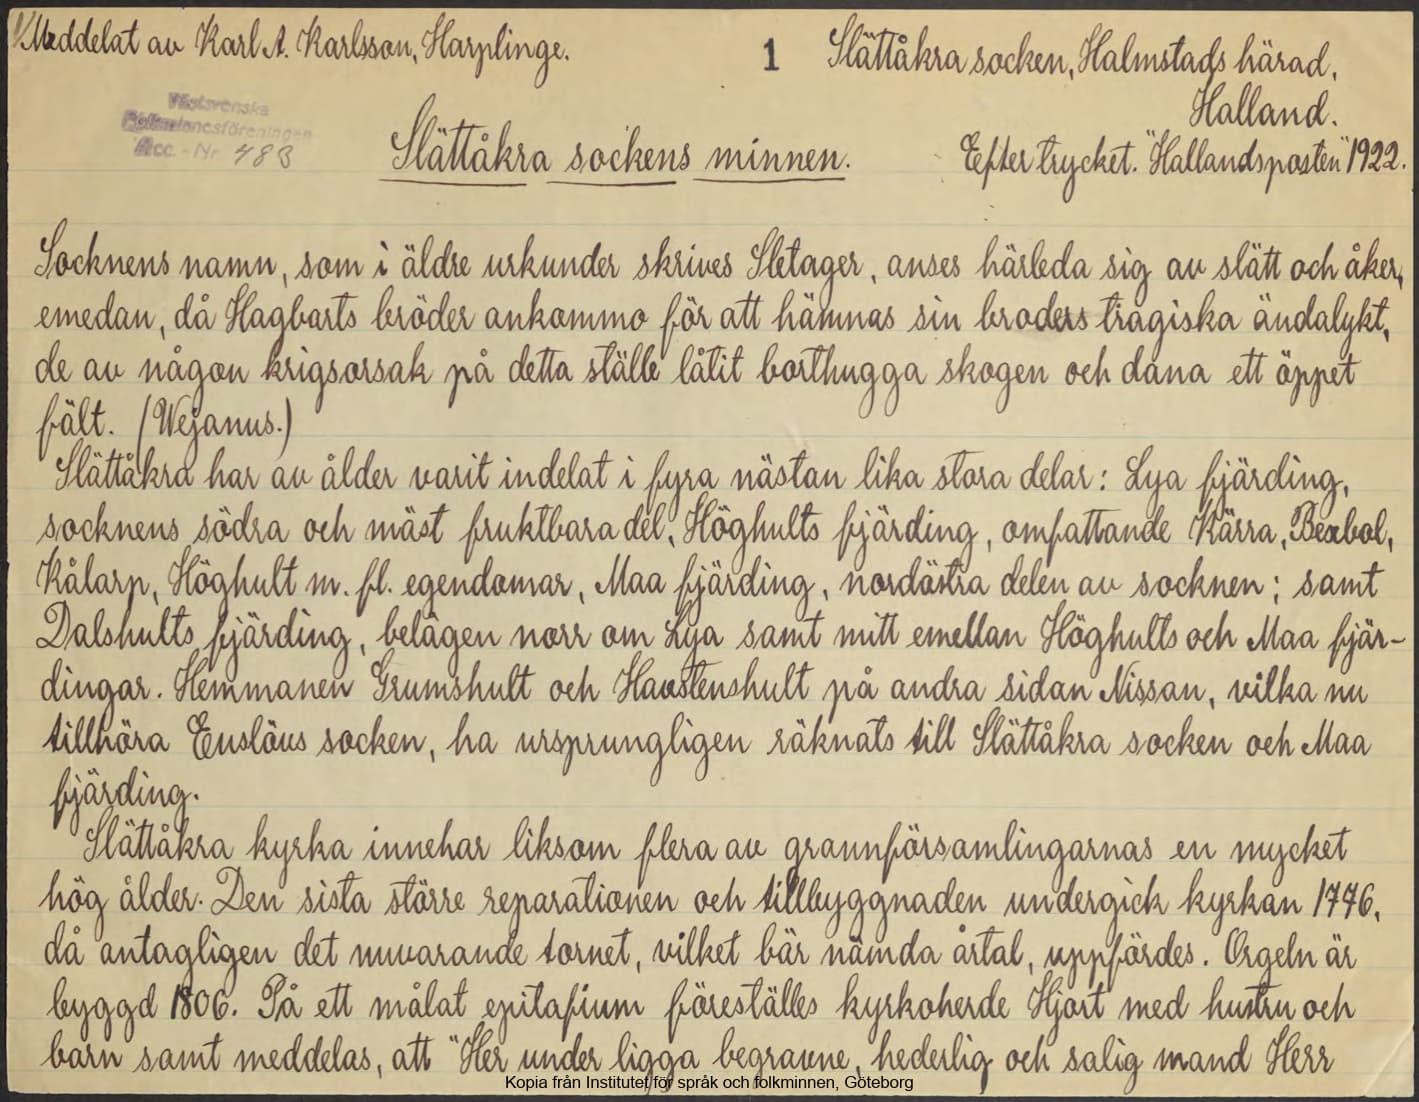 1/Meddelat av Karl A. Karlsson, Harplinge.
1
Slättåkra socken, Halmstads härad,
Halland.
Västsvenska
Folkminnesföreningen
Acc. - Nr 483
Slättåkra sockens minnen.
Efter trycket. "Hallandsposten" 1922.
Socknens namn, som i äldre urkunder skrives Sletager, anses härleda sig av slätt och åker,
emedan, då Hagbarts bröder ankommo för att hämnas sin broders tragiska ändalykt,
de av någon krigsorsak på detta ställe låtit borthugga skogen och dana ett öppet
fält. (Wejanus.)
Slättåkra har av ålder varit indelat i fyra nästan lika stora delar: Lya fjärding,
socknens södra och mäst fruktbara del, Höghults fjärding, omfattande Kärra, Bexbol,
Kålarp, Höghult m. fl. egendomar, Maa fjärding, nordöstra delen av socknen; samt
Dalshults fjärding, belägen norr om Lya samt mitt emellan Höghults och Maa fjär-
dingar. Hemmanen Grumshult och Havstenshult på andra sidan Nissan, vilka nu
tillhöra Enslövs socken, ha ursprungligen räknats till Slättåkra socken och Maa
fjärding.
Slättåkra kyrka innehar liksom flera av grannförsamlingarnas en mycket
hög ålder. Den sista större reparationen och tillbyggnaden undergick kyrkan 1776,
då antagligen det nuvarande tornet, vilket bär nämda årtal, uppfördes. Orgeln är
byggd 1806. På ett målat epitafium föreställes kyrkoherde Hjort med hustru och
barn samt meddelas, att "Her under ligga begravne, hederlig och salig mand Herr
Kopia från Institutet för språk och folkminnen, Göteborg